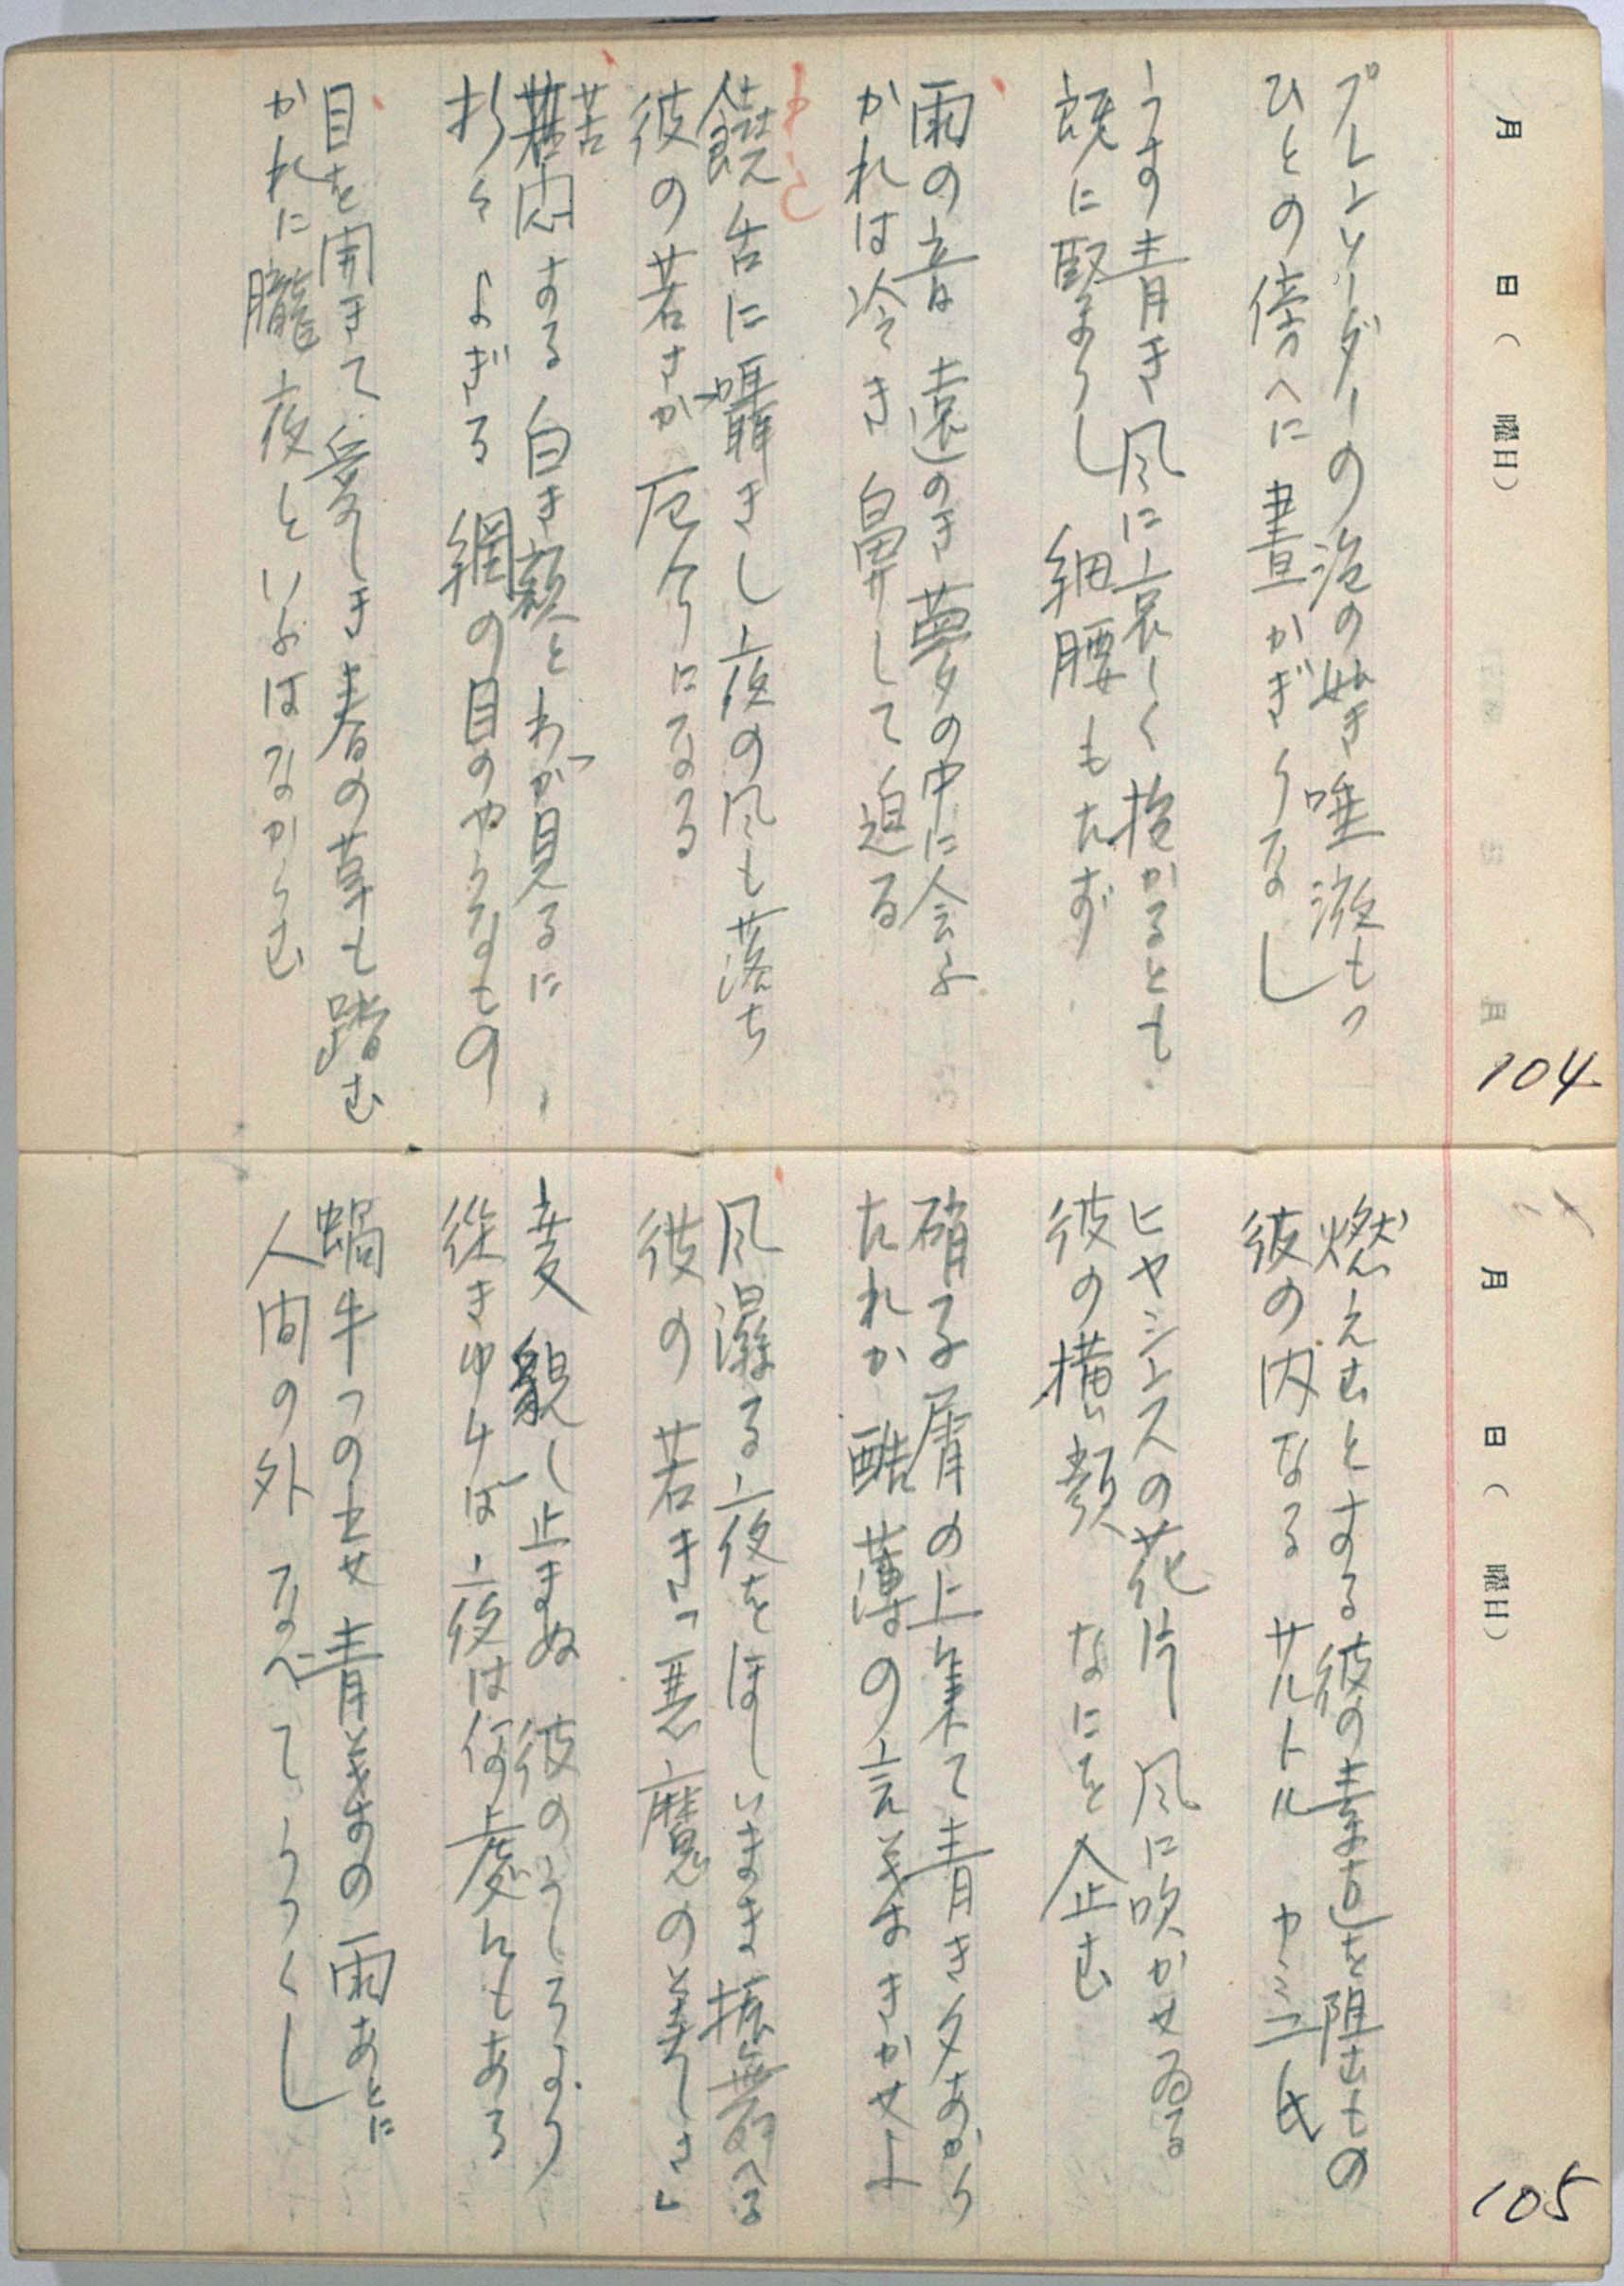 月 日（ 曜日）
104
プレンソーダーの泡の如き唾液もつ
ひとの傍へに昼かぎりなし
うす青き風に哀しく抱かるとも
既に堅まりし細腰もたず
雨の音遠のき夢の中に会ふ
かれは冷き鼻して迫る
饒舌に囁きし夜の風も落ち
彼の若さが厄介になる
苦悶する白き額とわが見るに
折々よぎる網の目のやうなもの
目を開きて妥しき春の草も踏む
かれに朧夜といふはなからむ
月 日（ 曜日）
105
燃えむとする彼の素直を阻むもの
彼の内なるサルトル カミユ氏
ヒヤシンスの花片風に吹かせゐる
彼の横顔なにを企む
硝子屑の上集て青き夕あかり
たれか酷薄の言葉きかせよ
風混る夜をほしいまま振舞へる
彼の若き「悪魔の美しさ」
変貌し止まぬ彼のうしろより
従きゆけば夜は何処にもある
蝸牛つのだせ青葉の雨あとに
人間の外なべてうつくし